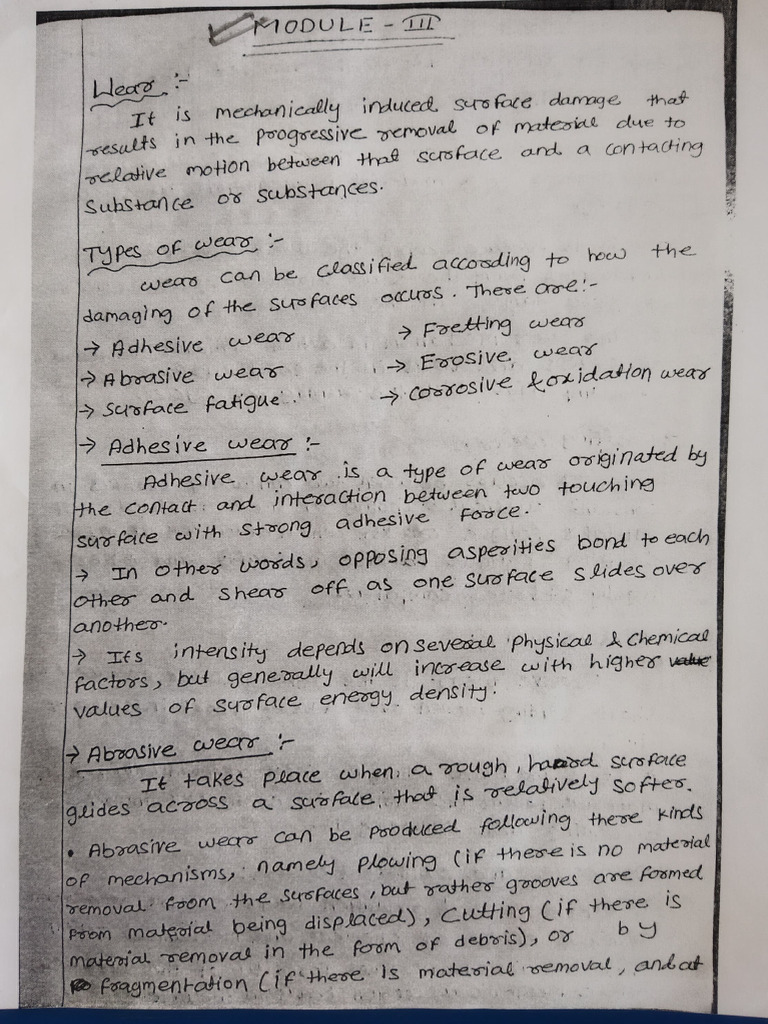 MODULE - III
Wear :-
It is mechanically induced surface damage that
results in the progressive removal of material due to
relative motion between that surface and a contacting
substance or substances.
Types of wear :-
wear can be classified according to how the
damaging of the surfaces occurs. There are:-
→ Adhesive wear → Fretting wear
→ Abrasive wear → Erosive wear
→ Surface fatigue → Corrosive & oxidation wear
→ Adhesive wear :-
Adhesive wear is a type of wear originated by
the contact and interaction between two touching
surface with strong adhesive force.
→ In other words, opposing asperities bond to each
other and shear off as one surface slides over
another.
→ Its intensity depends on several physical & chemical
factors, but generally will increase with higher value
values of surface energy density.
→ Abrasive wear :-
It takes place when a rough, hard surface
glides across a surface that is relatively softer.
• Abrasive wear can be produced following there kinds
of mechanisms, namely plowing (if there is no material
removal from the surfaces, but rather grooves are formed
from material being displaced), cutting (if there is
material removal in the form of debris), or by
fragmentation (if there is material removal, and at